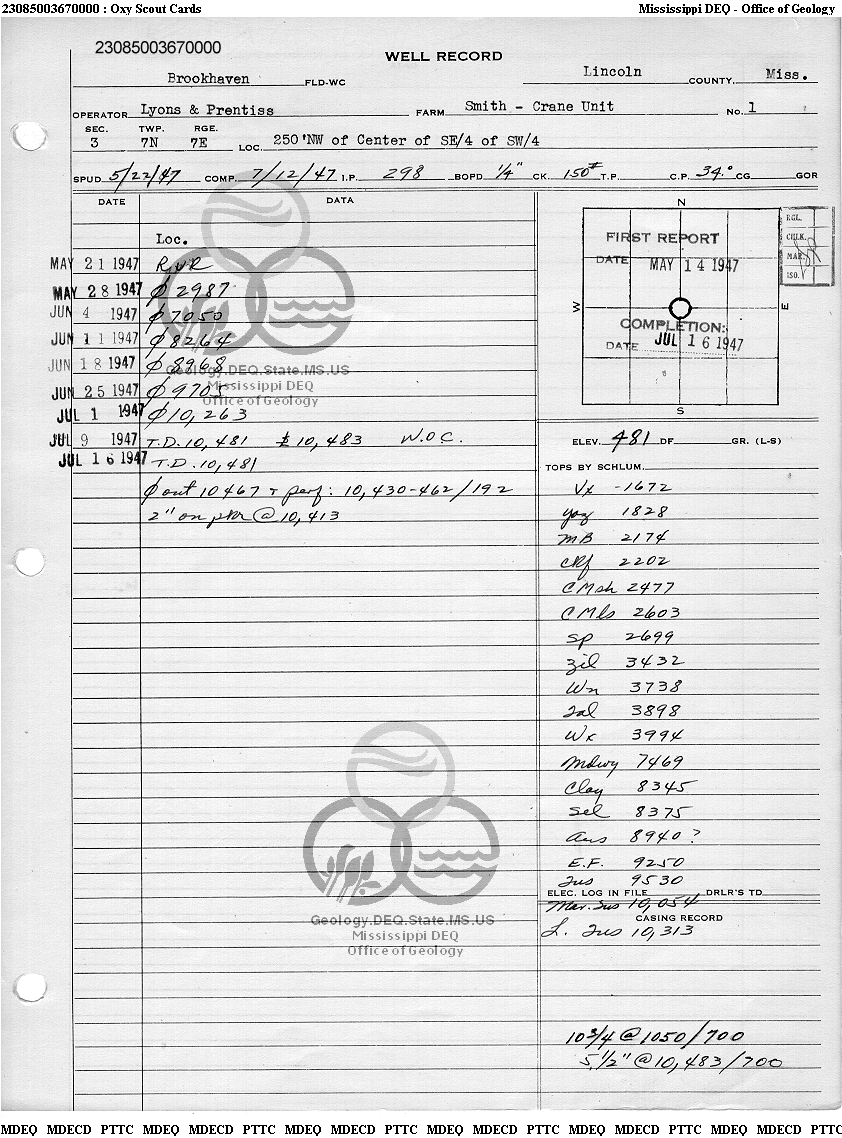 23085003670000 : Oxy Scout Cards Mississippi DEQ - Office of Geology
23085003670000
WELL RECORD
Brookhaven FLD-WC Lincoln COUNTY, Miss.
OPERATOR Lyons & Prentiss FARM Smith - Crane Unit No. 1
SEC. TWP. RGE.
3 7N 7E LOC. 250'NW of Center of SE/4 of SW/4
SPUD 5/22/47 COMP. 7/12/47 I.P. 298 BOPD 1/4" CK. 150# T.P. C.P. 34.° CG GOR
DATE DATA
Loc.
MAY 21 1947 RUR
MAY 28 1947 ∅ 2987
JUN 4 1947 ∅ 7050
JUN 11 1947 ∅ 8264
JUN 18 1947 ∅ 8968
JUN 25 1947 ∅ 9705
JUL 1 1947 ∅ 10,263
JUL 9 1947 T.D. 10,481 10,483 W.O.C.
JUL 16 1947 T.D. 10,481
∅ out 10467 + perf: 10,430-462/192
2" on pkr @ 10,413
Geology.DEQ.State.MS.US
Mississippi DEQ
Office of Geology
Geology.DEQ.State.MS.US
Mississippi DEQ
Office of Geology
N
W
E
S
FIRST REPORT
DATE MAY 14 1947
COMPLETION:
DATE JUL 16 1947
RGL.
CHLK.
MAP
ISO.
ELEV. 481 DF GR. (L-S)
TOPS BY SCHLUM.
Vx -1672
yaz 1828
MB 2174
CRf 2202
CMsh 2477
CMls 2603
Sp 2699
Zil 3432
Wn 3738
Tal 3898
Wx 3994
Mdwy 7469
Clay 8345
Sel 8375
Aus 8940 ?
E.F. 9250
Tus 9530
ELEC. LOG IN FILE DRLR'S TD
Mar. Tus 10,054
CASING RECORD
L. Tus 10,313
10 3/4 @ 1050/700
5 1/2" @ 10,483/700
MDEQ MDECD PTTC MDEQ MDECD PTTC MDEQ MDECD PTTC MDEQ MDECD PTTC MDEQ MDECD PTTC MDEQ MDECD PTTC